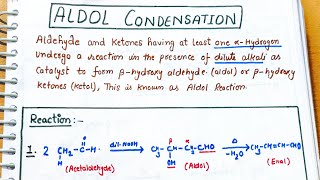 ALDOL CONDENSATION
Aldehyde and Ketones having at least one α-Hydrogen
undergo a reaction in the presence of dilute alkali as
Catalyst to form β-hydroxy aldehyde (aldol) or β-hydroxy
Ketones (Ketol), This is known as Aldol Reaction.
Reaction:-
1. 2 CH₂-C-H. dil·NaOH CH₃-CH-CH₂-CHO Δ CH₃-CH=CH-CHO
H O β α OH -H₂O
(Acetaldehyde) (Aldol) (Enal)